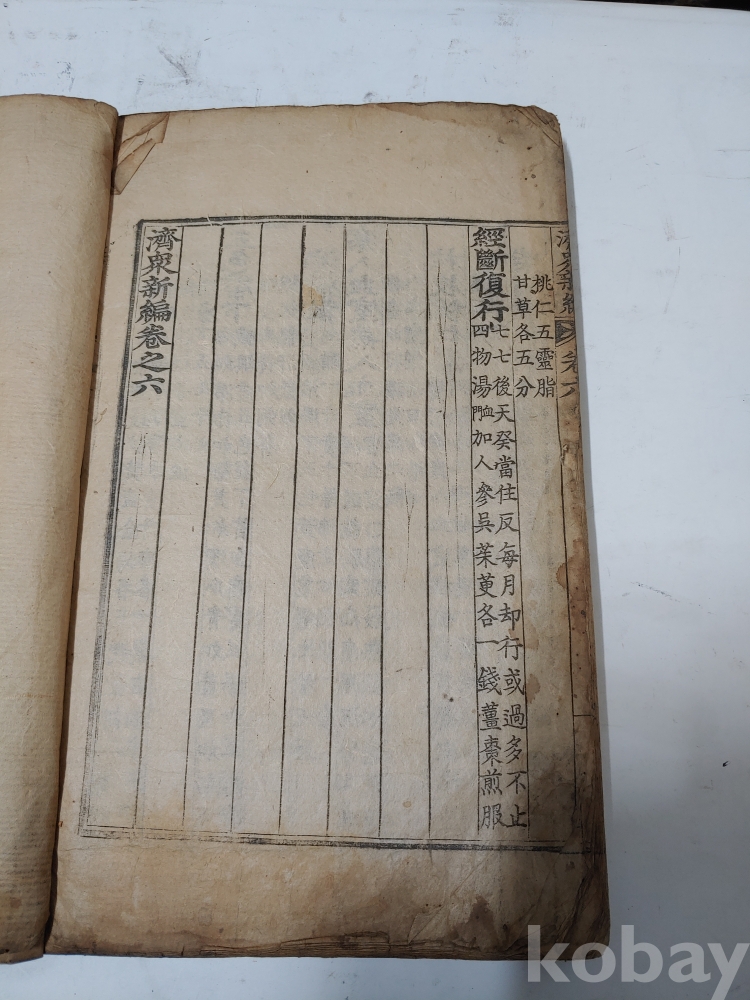 濟衆新編 卷六
桃仁五靈脂
甘草各五分
經斷復行
七七後天癸當住反每月却行或過多不止
四物湯血門加人參吳茱萸各一錢薑棗煎服
濟衆新編卷之六
kobay